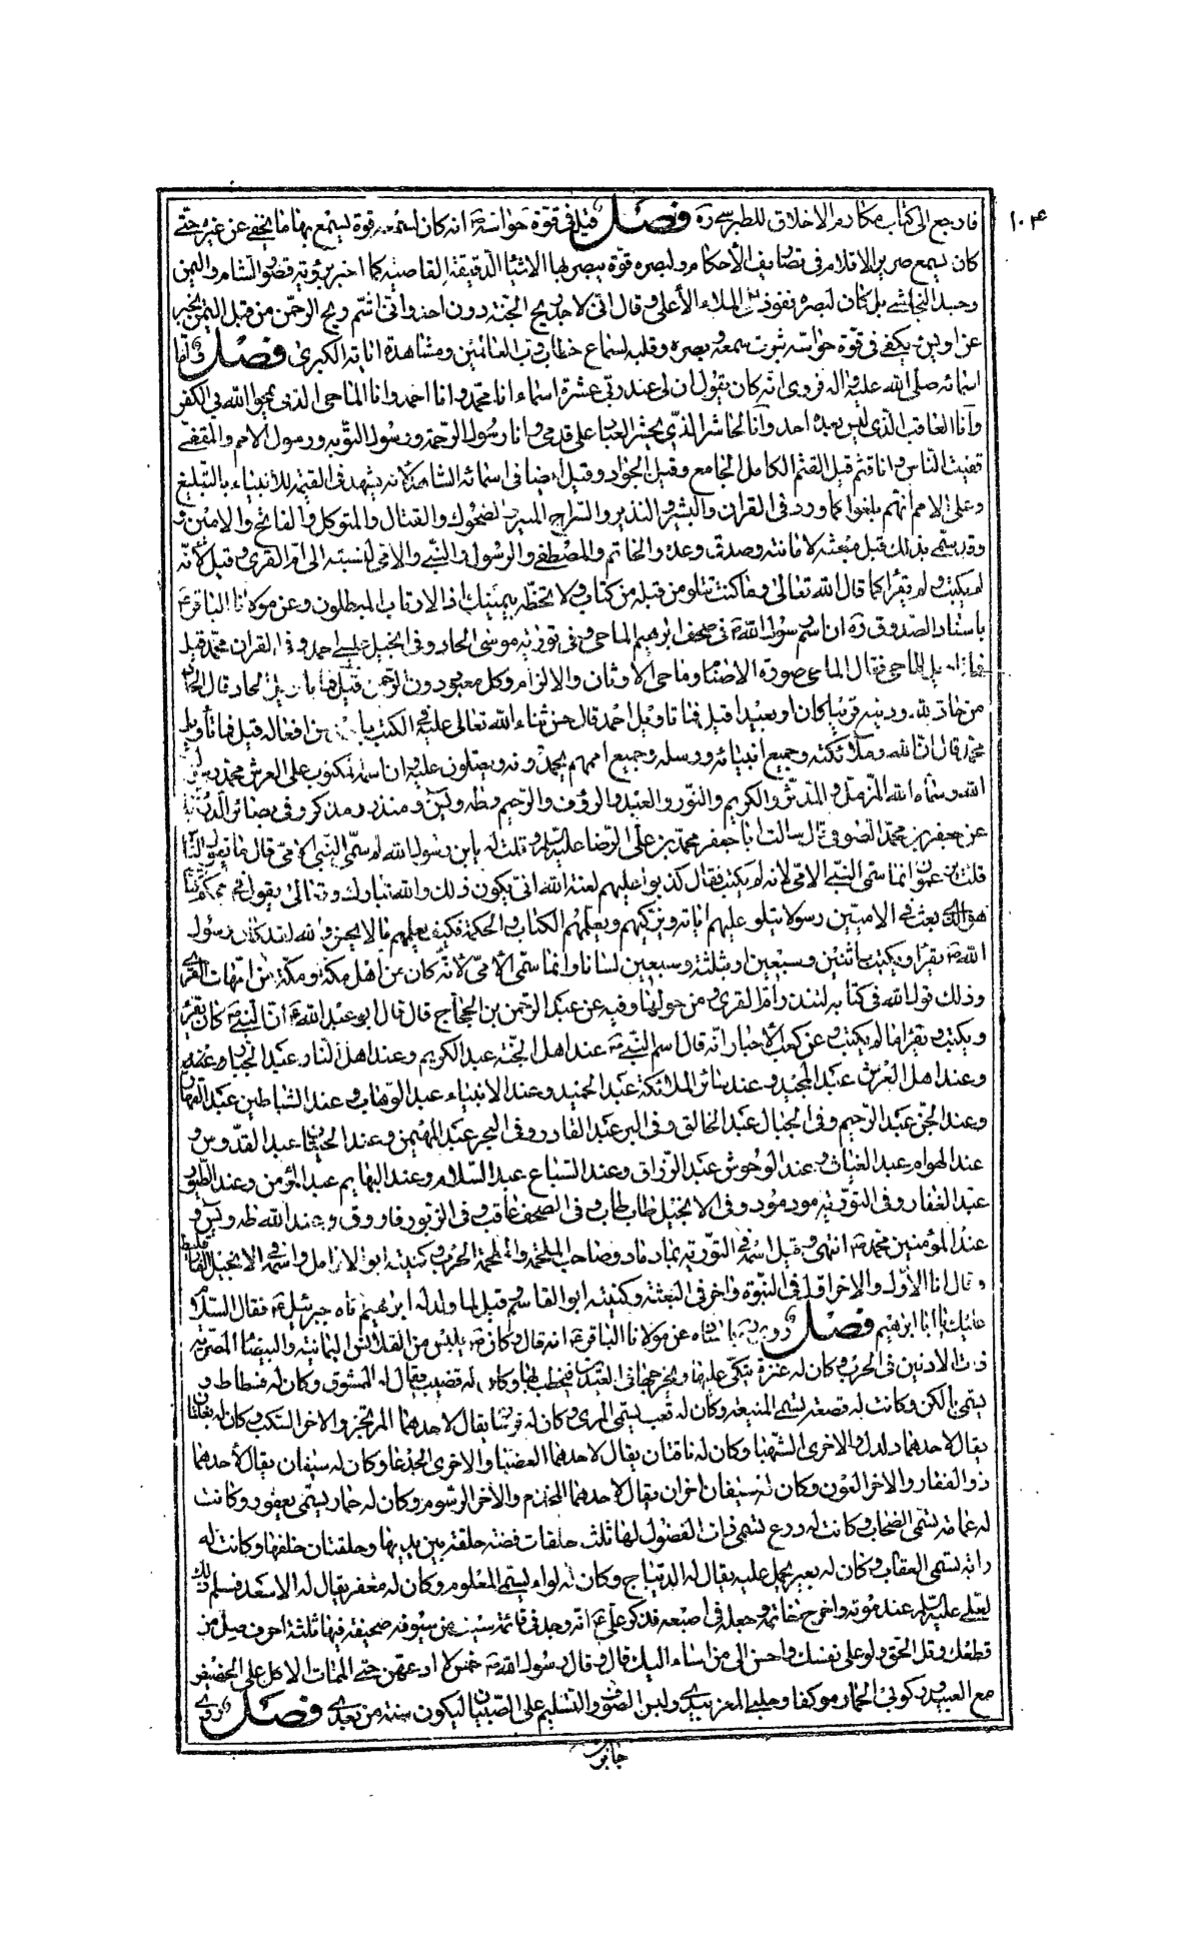 فارجع الى كتاب مكارم الاخلاق للطبرسى ره فصل قيل فى قوة حواسه انه كان لسمعه قوة يسمع بها ما يخفى عن غيره حتى
كان يسمع صرير الاقلام فى تصاريف الأحكام ولبصره قوة يبصر بها الاشياء الدقيقة القاصية كما اخبر برؤيته قصور الشام واليمن
وجسد النجاشى بل كان لبصره نفوذ الملاء الأعلى وقال انى لاجد ريح الجنة دون احد وانى اشم ريح الرحمن من قبل اليمن يخبر
عن اويس يكفى فى قوة حواسه ثبوت سمعه وبصره وقلبه لسماع خطاب رب العالمين ومشاهدة اياته الكبرى فصل واما
اسمائه صلى الله عليه واله فروى انه كان يقول ان لى عند ربى عشرة اسماء انا محمد وانا احمد وانا الماحى الذى يمحو الله بى الكفر
وانا العاقب الذى ليس بعده احد وانا الحاشر الذى يحشر العباد على قدمى وانا رسول الرحمة ورسول التوبة ورسول الملاحم والمقفى
قفيت الناس وانا قثم قيل القثم الكامل الجامع وقيل الجواد وقيل ايضا فى اسمائه الشاهد لانه يشهد فى القيمة للأنبياء بالتبليغ
وعلى الامم انهم بلغوا كما ورد فى القران والبشير والنذير والسراج المنير الضحوك والقتال والمتوكل والفاتح والامين و
وقد سمى بذلك قبل مبعثه لامانته وصدق وعده والخاتم والمصطفى والرسول والنبى والامى لنسبته الى ام القرى وقيل لأنه
لم يكتب ولم يقرا كما قال الله تعالى وما كنت تتلو من قبله من كتاب ولا تخطه بيمينك اذا لارتاب المبطلون وعن مولانا الباقر ع
باسناد الصدوق ره ان اسم رسول الله ص فى صحف ابرهيم الماحى وفى تورية موسى الحاد وفى انجيل عيسى احمد وفى القران محمد قيل
فما تاويل الماحى فقال الماحى صورة الاصنام وماحى الاوثان والازلام وكل معبود دون الرحمن قيل فما تاويل الحاد قال يحاد
من حاد الله ودينه قريبا كان او بعيدا قيل فما تاويل احمد قال حسن ثناء الله تعالى عليه فى الكتب بما حمد من افعاله قيل فما تأويل
محمد قال ان الله وملائكته وجميع انبيائه ورسله وجميع اممهم يحمدونه ويصلون عليه وان اسمه لمكتوب على العرش محمد رسول
الله وسماه الله المزمل والمدثر والكريم والنور والعبد والرؤف والرحيم وطه ويس ومنذر ومذكر وفى بصائر الدرجات
عن جعفر بن محمد الصوفى قال سالت ابا جعفر محمد بن على الرضا عليه السلم وقلت له يا بن رسول الله لم سمى النبى الامى قال ما يقول الناس
قلت يزعمون انما سمى النبى الامى لانه لم يكتب فقال كذبوا عليهم لعنة الله انى يكون ذلك والله تبارك وتعالى يقول فى محكم كتابه
هو الذى بعث فى الاميين رسولا يتلو عليهم اياته ويزكيهم ويعلمهم الكتاب والحكمة فكيف يعلمهم ما لا يحسن والله لقد كان رسول
الله ص يقرا ويكتب باثنين وسبعين او بثلثة وسبعين لسانا وانما سمى الأمى لانه كان من اهل مكة ومكة من امهات القرى
وذلك قول الله فى كتابه لتنذر ام القرى ومن حولها وفيه عن عبد الرحمن بن الحجاج قال قال ابو عبد الله ع ان النبى ص كان يقرء
ويكتب ويقرا ما لم يكتب وعن كعب الأحبار انه قال اسم النبى ص عند اهل الجنة عبد الكريم وعند اهل النار عبد الجبار وعند
وعند اهل العرش عبد المجيد وعند سائر الملائكة عبد الحميد وعند الانبياء عبد الوهاب وعند الشياطين عبد القهار
وعند الجن عبد الرحيم وفى الجبال عبد الخالق وفى البر عبد القادر وفى البحر عبد المهيمن وعند الحيتان عبد القدوس و
عند الهوام عبد الغياث وعند الوحوش عبد الرزاق وعند السباع عبد السلام وعند البهايم عبد المؤمن وعند الطيور
عبد الغفار وفى التورية مود مود وفى الانجيل طاب طاب وفى الصحف عاقب وفى الزبور فاروق وعند الله طه ويس و
عند المؤمنين محمد ص انتهى وقيل اسمه فى التورية بماد ماد وصاحب الملحمة والملحمة الحرب وكنيته ابو الارامل واسمه فى الانجيل الفارقليط
وقال انا الأول والاخر اول فى النبوة واخر فى البعثة وكنيته ابو القاسم وقيل لما ولد له ابرهيم اتاه جبرئيل ع فقال السلام
عليك يا ابا ابرهيم فصل روى باسناده عن مولانا الباقر ع انه قال وكان ص يلبس من القلانس اليمانية والبيضاء المضربة
ذات الاذنين فى الحرب وكان له عنزة يتكى عليها ويخرجها فى العيدين فيخطب بها وكان له قضيب يقال له الممشوق وكان له فسطاط و
يسمى الكن وكانت له قصعة تسمى المنبعة وكان له قعب يسمى الرى وكان له فرسان يقال لاحدهما المرتجز والاخر السكب وكان له بغلتان
يقال لاحدهما دلدل والاخرى الشهبا وكان له ناقتان يقال لاحدهما العضبا والاخرى الجدعا وكان له سيفان يقال لأحدهما
ذو الفقار والاخر العون وكان له سيفان اخران يقال لاحدهما المخذم والأخر الرسوم وكان له حمار يسمى يعفور وكانت
له عمامة تسمى السحاب وكانت له درع تسمى ذات الفضول لها ثلث حلقات فضة حلقة بين يديها وحلقتان خلفها وكانت له
راية تسمى العقاب وكان له بعير يحمل عليه يقال له الديباج وكان له لواء يسمى المعلوم وكان له مغفر يقال له الاسعد فسلم ذلك
لعلى عليه السلم عند موته واخرج خاتمه وجعله فى اصبعه فذكر على ع انه وجد فى قائمة سيف من سيوفه صحيفة فيها ثلثة احرف صل من
قطعك وقل الحق ولو على نفسك واحسن الى من اساء اليك قال وقال رسول الله ص خمس لا ادعهن حتى الممات الاكل على الحضيض
مع العبيد وركوبى الحمار موكفا وحلبى العنز بيدى ولبس الصوف والتسليم على الصبيان ليكون سنة من بعدى فصل روى
جابر